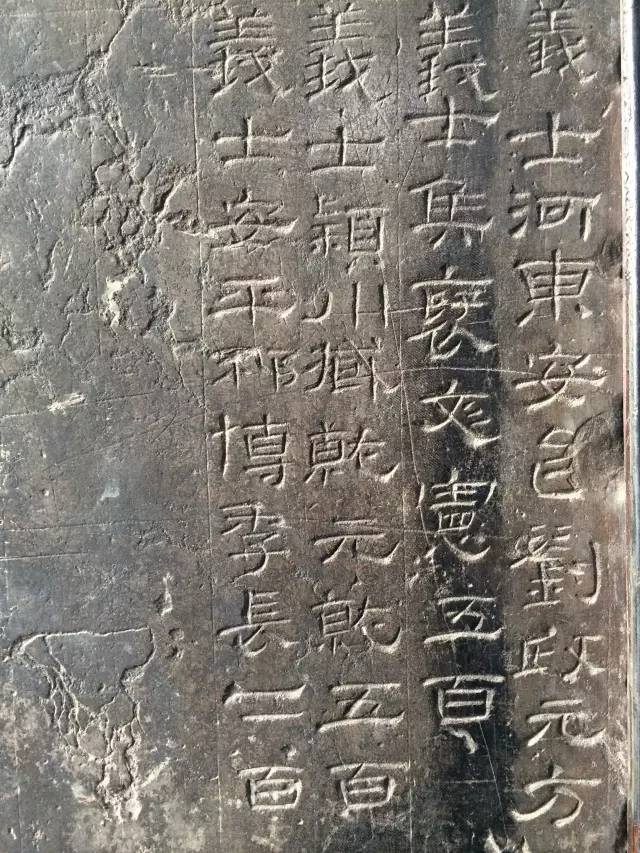 義士河東安邑劉政元方
義士侯褒文憲五百
義士潁川臧就元就五百
義士安平祁博季長二百